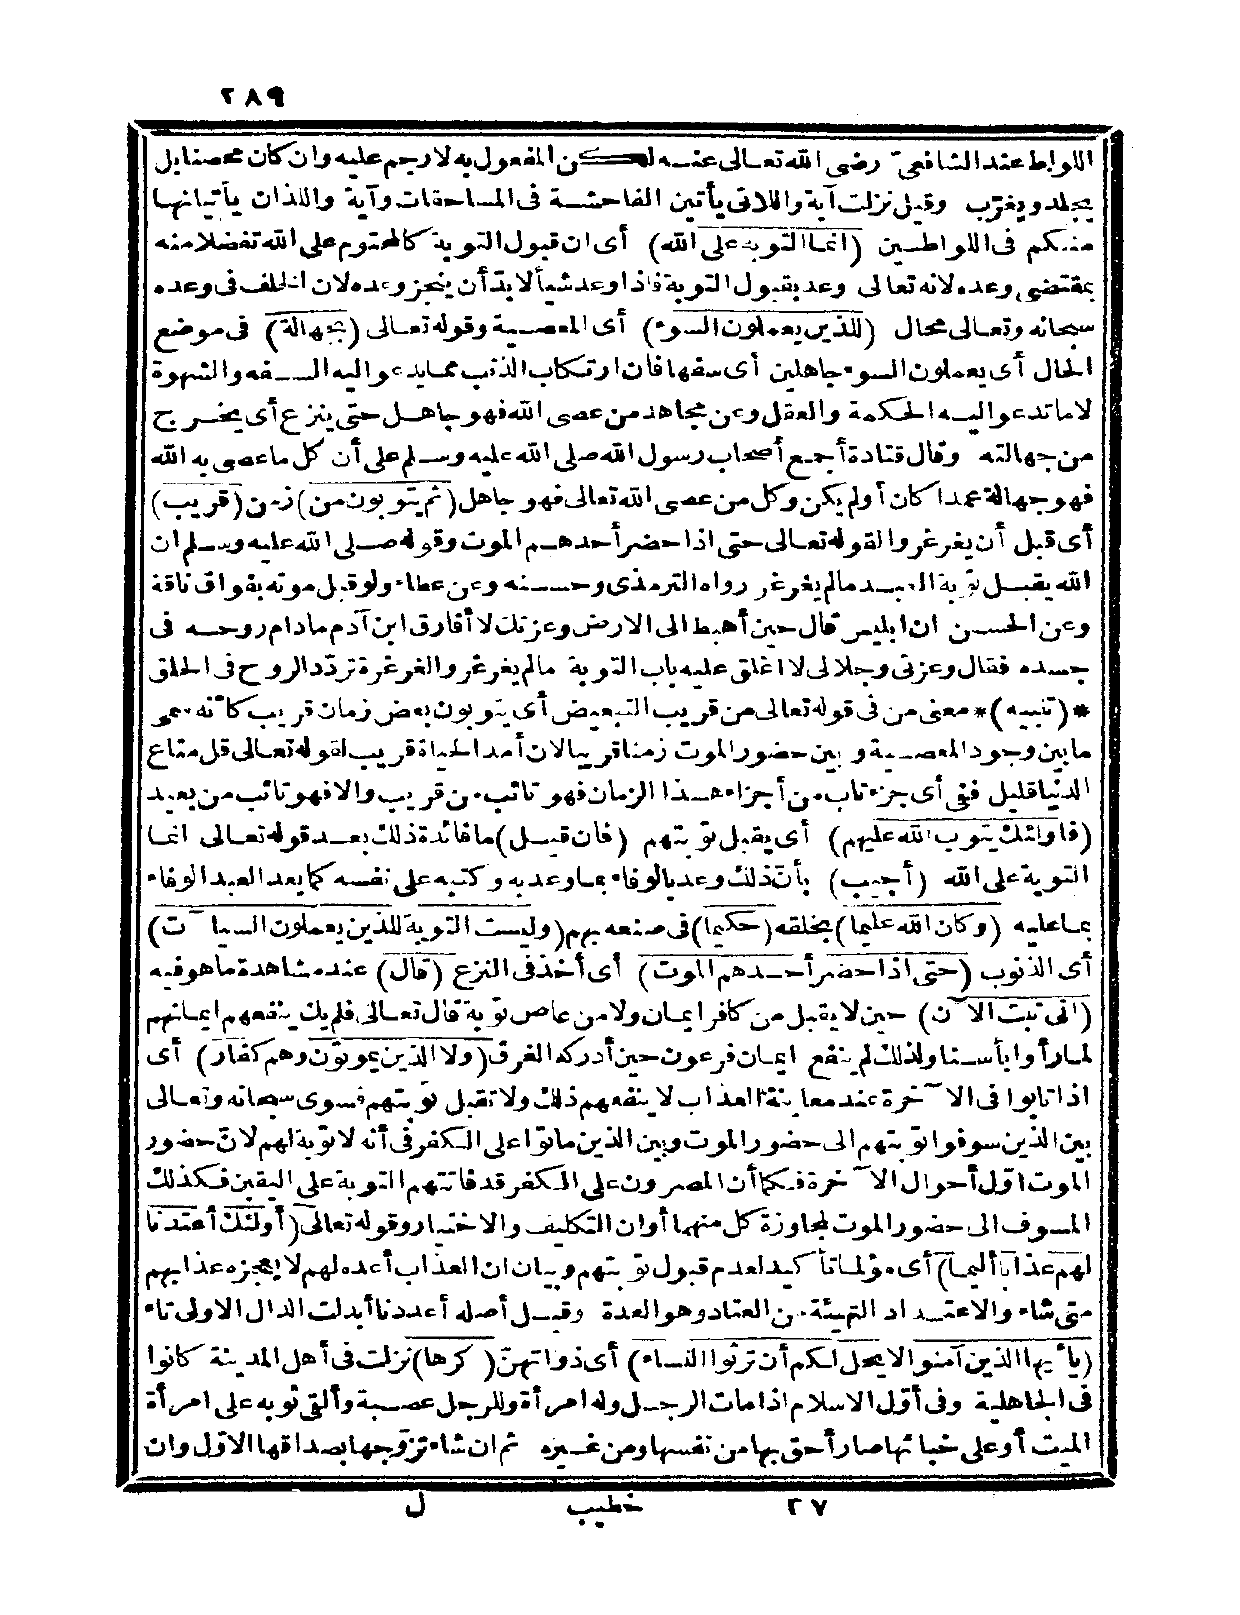 ٢٨٩
اللواط عند الشافعىّ رضى الله تعالى عنه لكن المفعول به لا رجم عليه وان كان محصنا بل
يجلد ويغرّب وقيل نزلت آية واللاتى يأتين الفاحشة فى المساحقات وآية واللذان يأتيانها
منكم فى اللواطين (انما التوبة على الله) أى ان قبول التوبة كالمحتوم على الله تفضلا منه
بمقتضى وعده لانه تعالى وعد بقبول التوبة فاذا وعد شيأ لابدّ أن ينجز وعده لان الخلف فى وعده
سبحانه وتعالى محال (للذين يعملون السوء) أى المعصية وقوله تعالى (بجهالة) فى موضع
الحال أى يعملون السوء جاهلين أى سفها فان ارتكاب الذنب مما يدعو اليه السفه والشهوة
لا ما تدعو اليه الحكمة والعقل وعن مجاهد من عصى الله فهو جاهل حتى ينزع أى يخرج
من جهالته وقال قتادة أجمع أصحاب رسول الله صلى الله عليه وسلم على أن كل ما عصى به الله
فهو جهالة عمدا كان أو لم يكن وكل من عصى الله تعالى فهو جاهل (ثم يتوبون من) زمن (قريب)
أى قبل أن يغرغروا لقوله تعالى حتى اذا حضر أحدهم الموت وقوله صلى الله عليه وسلم ان
الله يقبل توبة العبد مالم يغرغر رواه الترمذى وحسنه وعن عطاء ولو قبل موته بفواق ناقة
وعن الحسن ان ابليس قال حين أهبط الى الارض وعزتك لا أفارق ابن آدم مادام روحه فى
جسده فقال وعزتى وجلالى لا اغلق عليه باب التوبة مالم يغرغر والغرغرة تردّد الروح فى الحلق
*(تنبيه)* معنى من فى قوله تعالى من قريب التبعيض أى يتوبون بعض زمان قريب كأنه سمى
ما بين وجود المعصية وبين حضور الموت زمنا قريبا لان أمد الحياة قريب لقوله تعالى قل متاع
الدنيا قليل ففى أى جزء تاب من أجزاء هذا الزمان فهو تائب من قريب والا فهو تائب من بعيد
(فاولئك يتوب الله عليهم) أى يقبل توبتهم (فان قيل) ما فائدة ذلك بعد قوله تعالى انما
التوبة على الله (أجيب) بأنّ ذلك وعد بالوفاء بما وعد به وكتبه على نفسه كما يعد العبد الوفاء
بما عليه (وكان الله عليما) بخلقه (حكيما) فى صنعه بهم (وليست التوبة للذين يعملون السيآت)
أى الذنوب (حتى اذا حضر أحدهم الموت) أى أخذ فى النزع (قال) عند مشاهدة ما هو فيه
(انى تبت الآن) حين لا يقبل من كافر ايمان ولا من عاص توبة قال تعالى فلم يك ينفعهم ايمانهم
لما رأوا بأسنا ولذلك لم ينفع ايمان فرعون حين أدركه الغرق (ولا الذين يموتون وهم كفار) أى
اذا تابوا فى الآخرة عند معاينة العذاب لا ينفعهم ذلك ولا تقبل توبتهم فسوى سبحانه وتعالى
بين الذين سوفوا توبتهم الى حضور الموت وبين الذين ماتوا على الكفر فى أنه لا توبة لهم لانّ حضور
الموت اوّل أحوال الآخرة فكما أن المصرون على الكفر قد فاتتهم التوبة على اليقين فكذلك
المسوف الى حضور الموت لمجاوزة كل منهما أوان التكليف والاختيار وقوله تعالى (أولئك أعتدنا
لهم عذابا أليما) أى مؤلما تأكيد لعدم قبول توبتهم وبيان ان العذاب أعده لهم لا يعجزه عذابهم
متى شاء والاعتداد التهيئة من العتاد وهو العدة وقيل أصله أعددنا أبدلت الدال الاولى تاء
(يأيها الذين آمنوا لا يحل لكم أن ترثوا النساء) أى ذواتهنّ (كرها) نزلت فى أهل المدينة كانوا
فى الجاهلية وفى أوّل الاسلام اذا مات الرجل وله امرأة وللرجل عصبة وألقى ثوبه على امرأة
الميت أو على خبائها صار أحق بها من نفسها ومن غيره ثم ان شاء تزوّجها بصداقها الاوّل وان
٢٧ خطيب ل